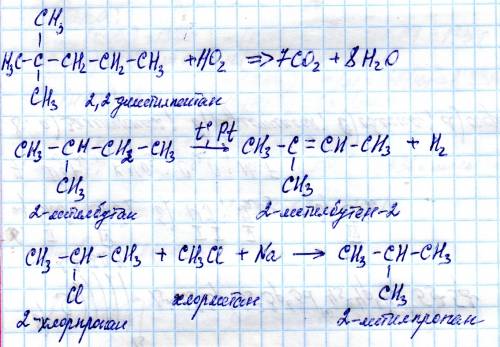 CH3
H3C-C-CH2-CH2-CH3 + 11O2 => 7CO2 + 8H2O
CH3
2,2 диметилпентан
CH3-CH-CH2-CH3 t°, Pt → CH3-C=CH-CH3 + H2
CH3 CH3
2-метилбутан 2-метилбутен-2
CH3-CH-CH3 + CH3Cl + Na → CH3-CH-CH3
Cl CH3
2-хлорпропан хлорметан 2-метилпропан